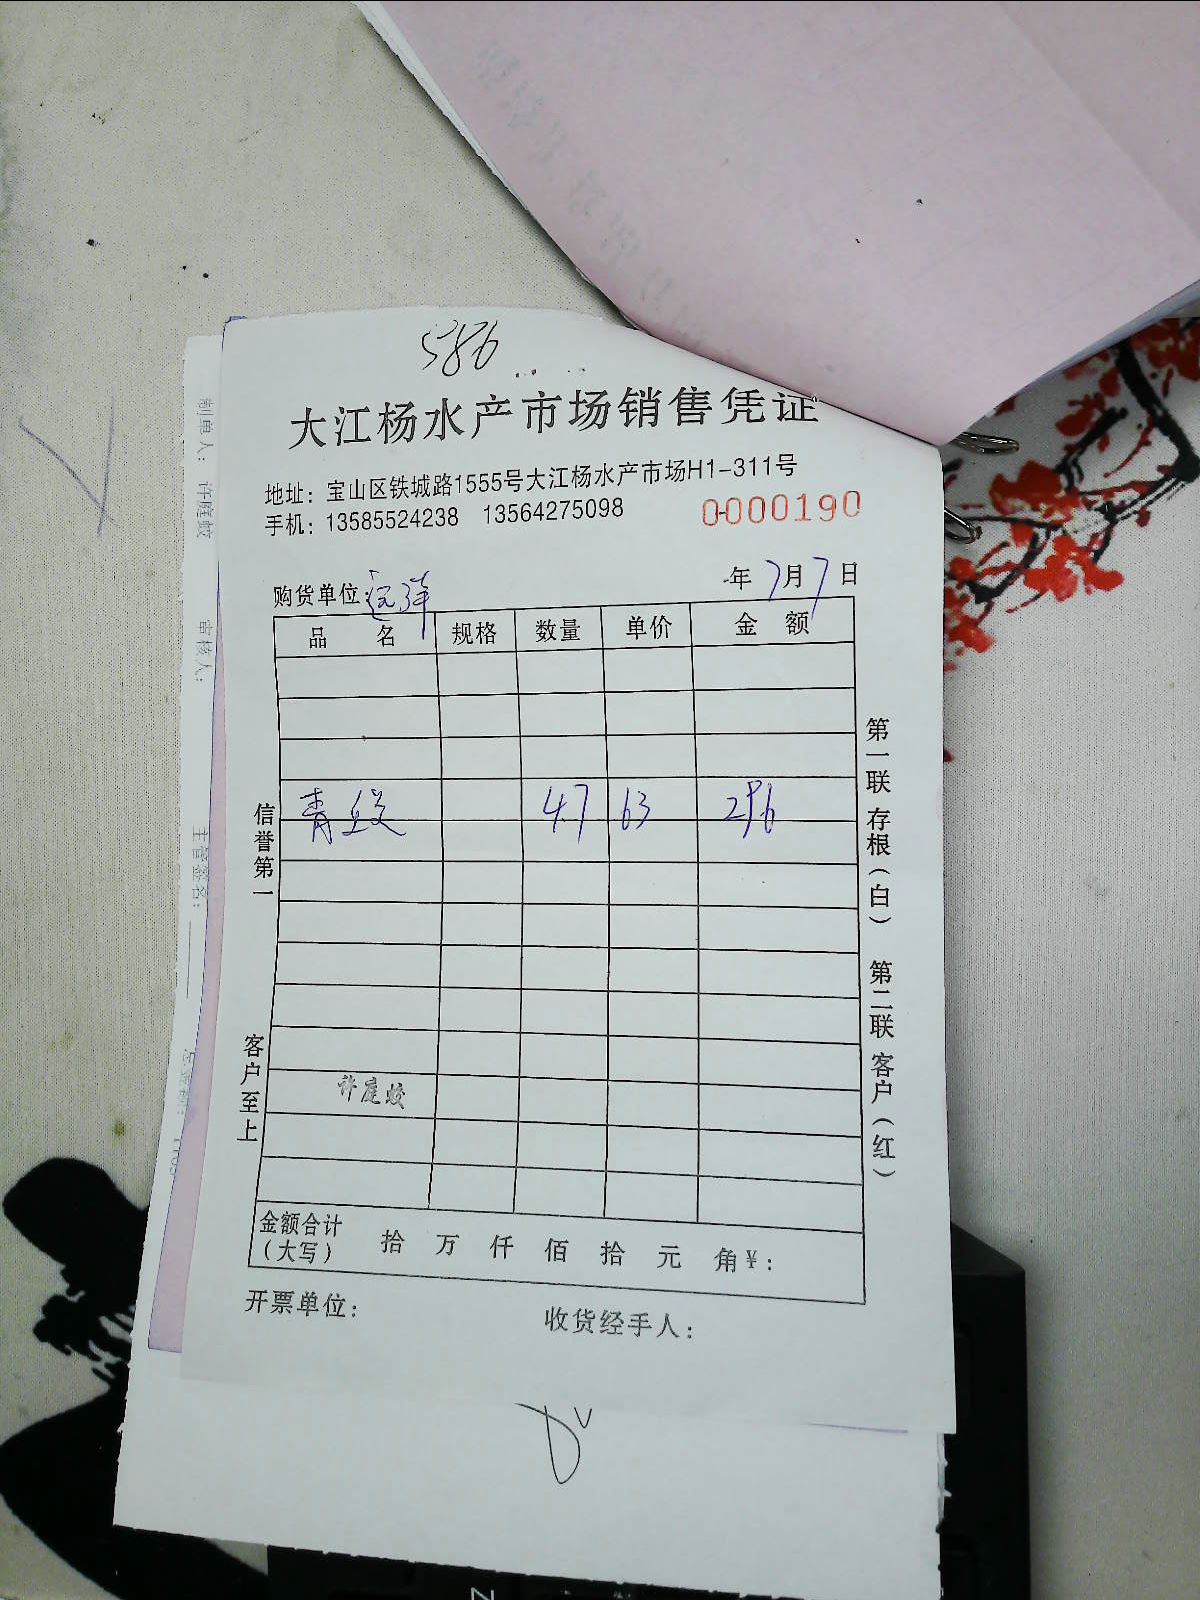 586
大江杨水产市场销售凭证
地址：宝山区铁城路1555号大江杨水产市场H1-311号
手机：13585524238 13564275098
0000190
购货单位：远洋
年 7月 7日
品名 规格 数量 单价 金额
青蛟 4.7 63 296
许庭蛟
金额合计（大写） 拾 万 仟 佰 拾 元 角 ¥：
开票单位： 收货经手人：
信誉第一 客户至上
第一联 存根（白） 第二联 客户（红）
制单人： 许庭蛟 审核人： 主管签名：